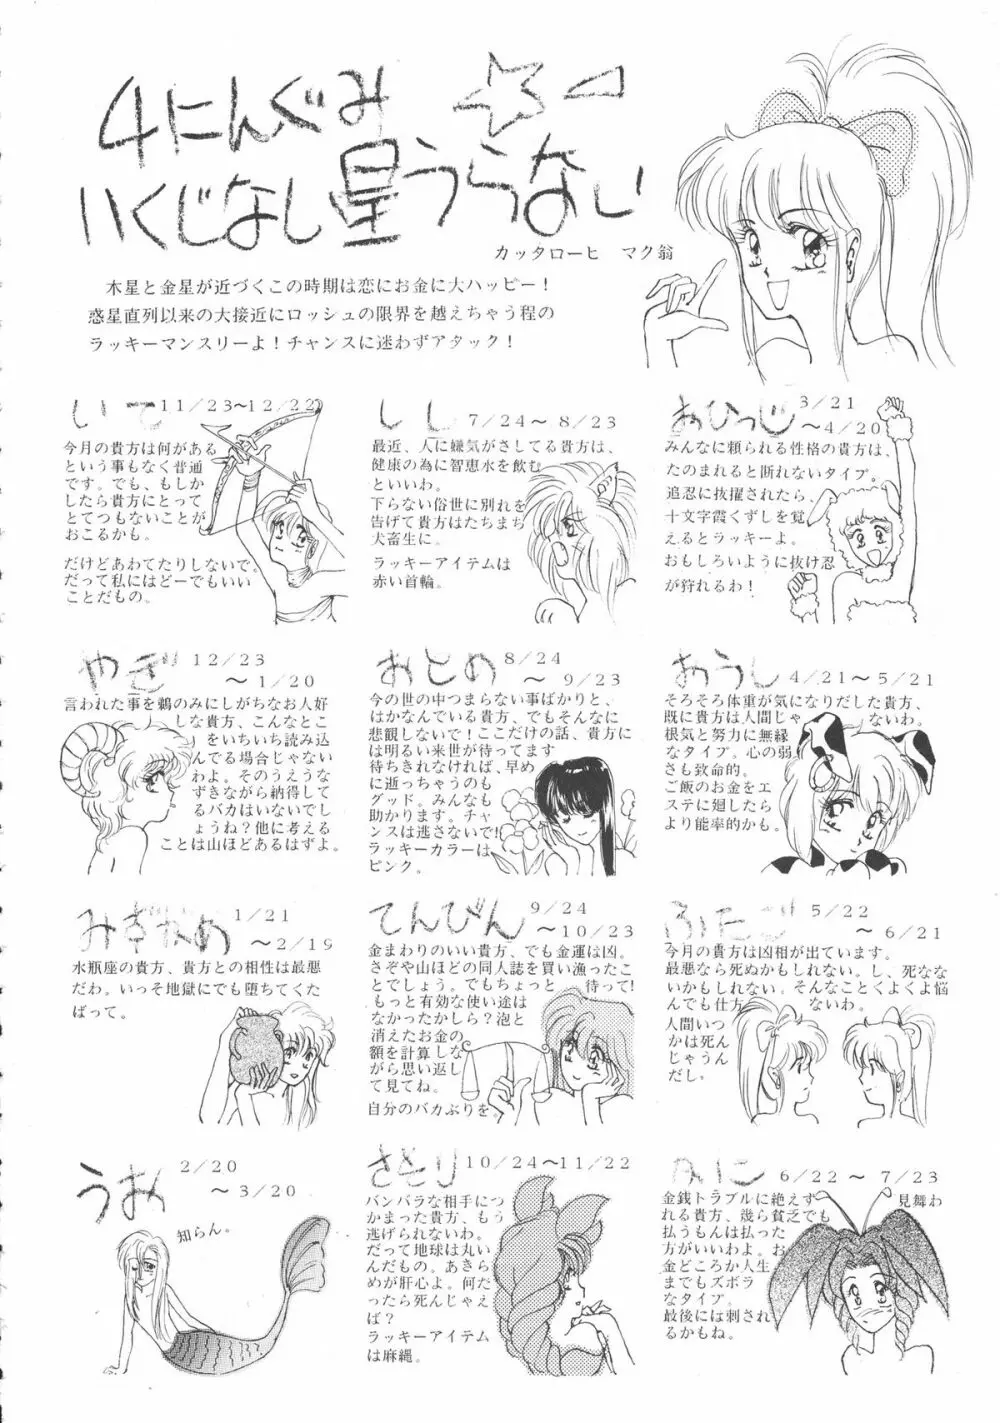 4にんぐみ
いくじなし星うらない
カッタローヒ マク翁
木星と金星が近づくこの時期は恋にお金に大ハッピー!
惑星直列以来の大接近にロッシュの限界を越えちゃう程の
ラッキーマンスリーよ!チャンスに迷わずアタック!
おひつじ
3/21
~4/20
みんなに頼られる性格の貴方は、
たのまれると断れないタイプ。
追忍に抜擢されたら、
十文字霞くずしを覚
えるとラッキーよ。
おもしろいように抜け忍
が狩れるわ!
しし
7/24~8/23
最近、人に嫌気がさしてる貴方は、
健康の為に智恵水を飲む
といいわ。
下らない俗世に別れを
告げて貴方はたちまち
犬畜生に。
ラッキーアイテムは
赤い首輪。
いて
11/23~12/22
今月の貴方は何がある
という事もなく普通
です。でも、もしか
したら貴方にとって
とてつもないことが
おこるかも。
だけどあわてたりしないで。
だって私にはどーでもいい
ことだもの。
おうし
4/21~5/21
そろそろ体重が気になりだした貴方、
既に貴方は人間じゃないわ。
根気と努力に無縁
なタイプ。心の弱
さも致命的。
ご飯のお金をエ
ステに廻したら
より能率的かも。
おとめ
8/24
~9/23
今の世の中つまらない事ばかりと、
はかなんでいる貴方、でもそんなに
悲観しないで!ここだけの話、貴方に
は明るい来世が待ってます
待ちきれなければ、早め
に逝っちゃうのも
グッド。みんなも
助かります。チャ
ンスは逃さないで!
ラッキーカラーは
ピンク。
やぎ
12/23
~1/20
言われた事を鵜のみにしがちなお人好
しな貴方、こんなとこ
をいちいち読み込
んでる場合じゃない
わよ。そのうえうな
ずきながら納得して
るバカはいないでし
ょうね?他に考える
ことは山ほどあるはずよ。
ふたご
5/22
~6/21
今月の貴方は凶相が出ています。
最悪なら死ぬかもしれない。し、死なな
いかもしれない。そんなことくよくよ悩
んでも仕方ないわ。
人間いつ
かは死ん
じゃうん
だし。
てんびん
9/24
~10/23
金まわりのいい貴方、でも金運は凶。
さぞや山ほどの同人誌を買い漁ったこ
とでしょう。でもちょっと待って!
もっと有効な使い途は
なかったかしら?泡と
消えたお金の
額を計算しな
がら思い返し
て見てね。
自分のバカぶりを。
みずがめ
1/21
~2/19
水瓶座の貴方、貴方との相性は最悪
だわ。いっそ地獄にでも堕ちてくた
ばって。
かに
6/22~7/23
金銭トラブルに絶えず見舞わ
れる貴方、幾ら貧乏でも
払うもんは払った
方がいいわよ。お
金どころか人生
までもズボラ
なタイプ。
最後には刺され
るかもね。
さそり
10/24~11/22
バンバラな相手につ
かまった貴方、もう
逃げられないわ。
だって地球は丸い
んだもの。あきら
めが肝心よ。何だ
ったら死んじゃえ
ば?
ラッキーアイテム
は麻縄。
うお
2/20
~3/20
知らん。